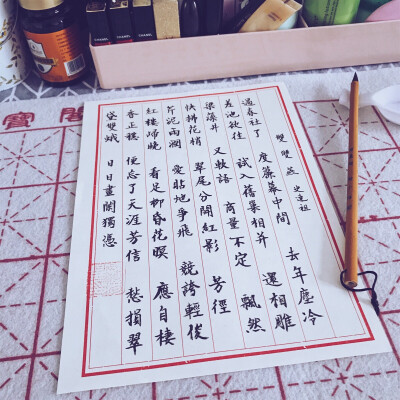 雙雙燕 史達祖
過春社了 度簾幕中間 去年塵冷
差池欲住 試入舊巢相并 還相雕
梁藻井 又軟語 商量不定 飄然
快拂花梢 翠尾分開紅影 芳徑
芹泥雨潤 愛貼地爭飛 競誇輕俊
紅樓歸晚 看足柳昏花暝 應自棲
香正穩 便忘了天涯芳信 愁損翠
黛雙蛾 日日畫闌獨憑
CHANEL
CHANEL